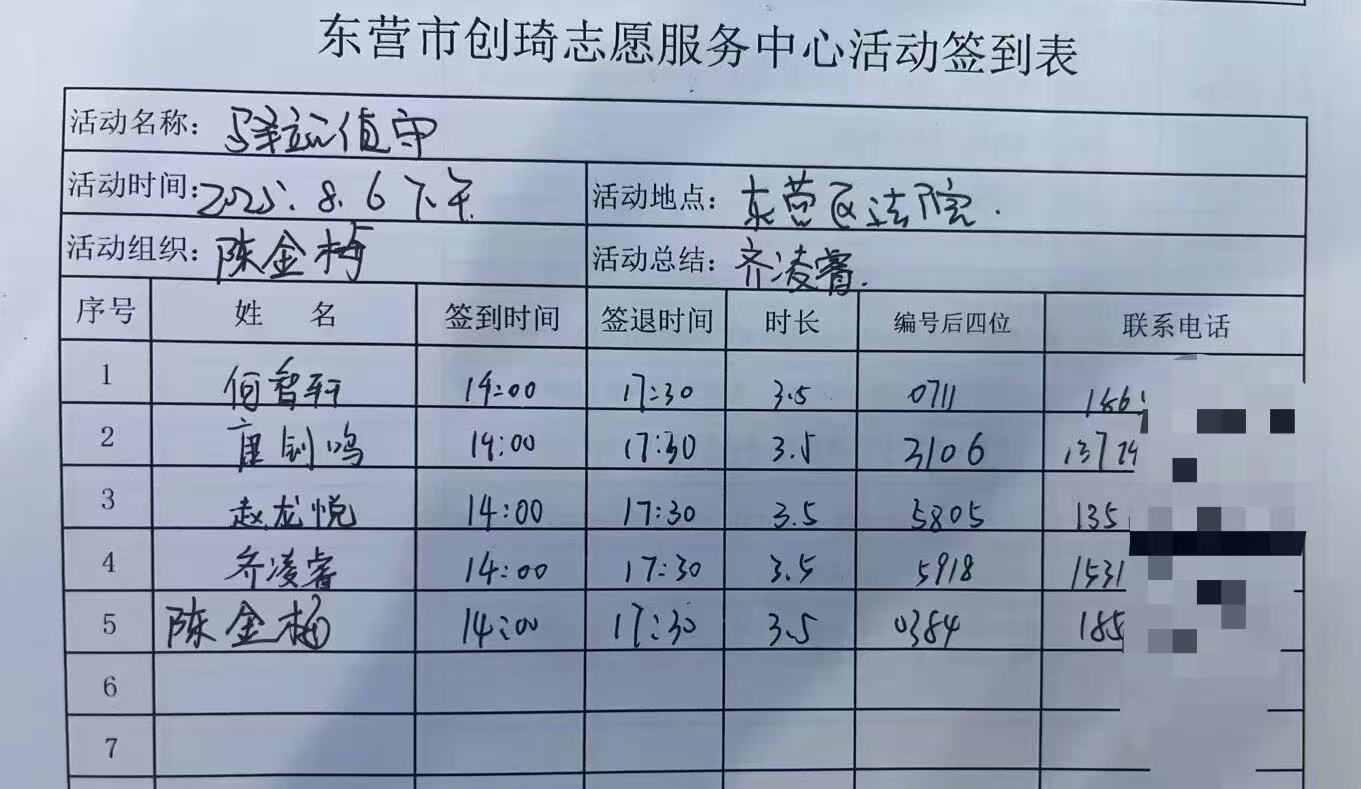 东营市创琦志愿服务中心活动签到表
活动名称：驿站值守
活动时间：2025.8.6下午 活动地点：东营区法院.
活动组织：陈金梅 活动总结：齐凌睿.
序号 姓 名 签到时间 签退时间 时长 编号后四位 联系电话
1 何智轩 14:00 17:30 3.5 0711 186
2 唐钊鸣 14:00 17:30 3.5 3106 137
3 赵龙悦 14:00 17:30 3.5 5805 135
4 齐凌睿 14:00 17:30 3.5 5918 1531
5 陈金梅 14:00 17:30 3.5 0384 185
6
7